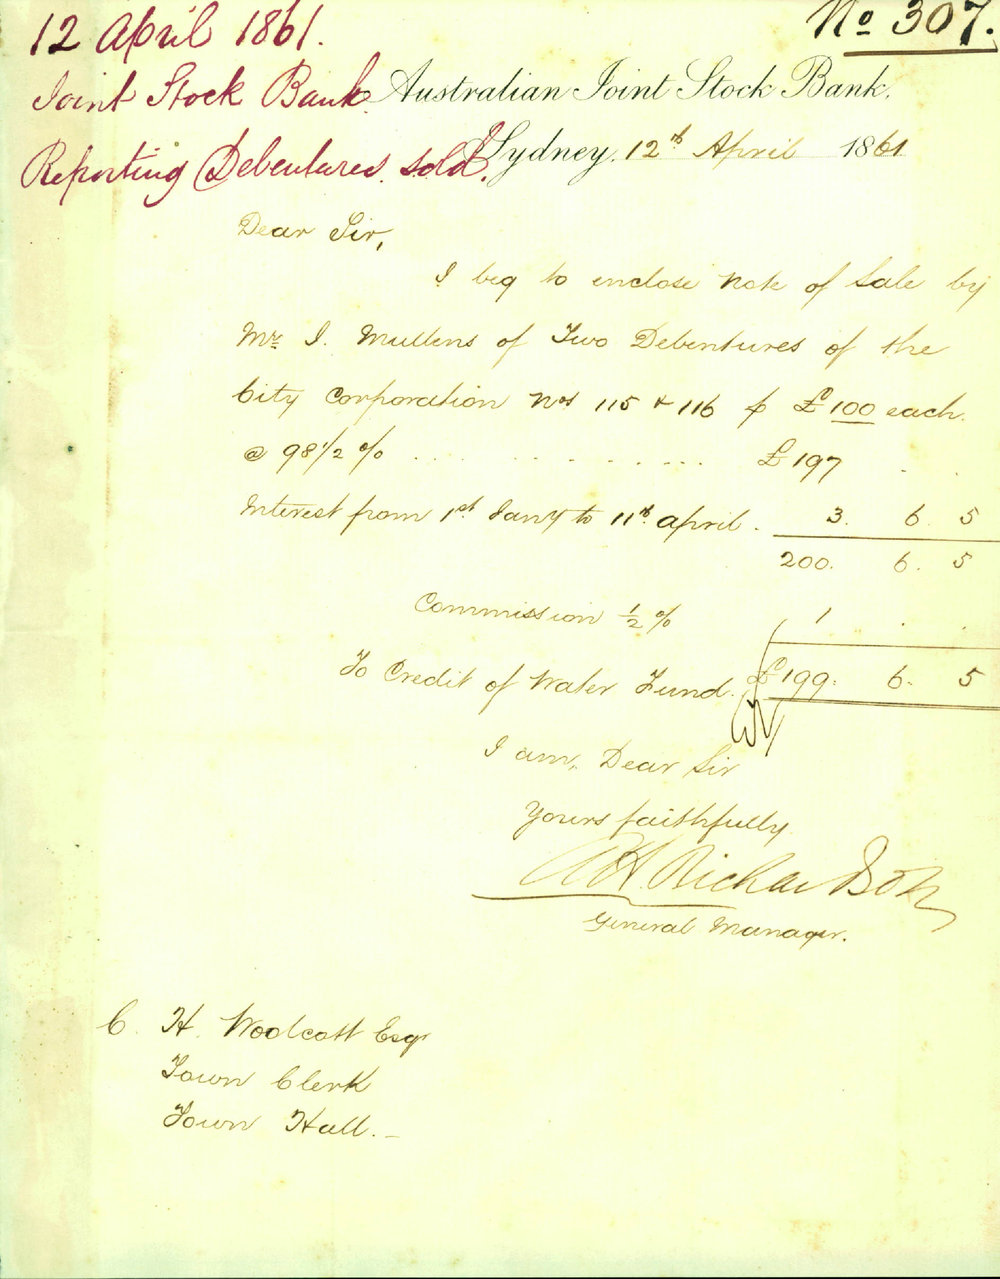 No 307.
12 April 1861.
Joint Stock Bank
Reporting Debentures sold.
Australian Joint Stock Bank.
Sydney, 12th April 1861
Dear Sir,
I beg to enclose Note of Sale by
Mr J. Mullens of Two Debentures of the
City Corporation Nos 115 & 116 p £100 each.
@ 98 1/2 % .... ........ £197 . .
Interest from 1st Jany to 11th April . 3. 6. 5
200. 6. 5
Commission 1/2 % 1 . .
To Credit of Water Fund. £199. 6. 5
I am, Dear Sir
Yours faithfully
Richardson
General Manager.
C. H. Woolcott Esqr
Town Clerk
Town Hall.